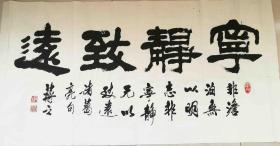 寧靜致遠
非澹
泊無
以明
志非
寧靜
无以
致遠
諸葛
亮句